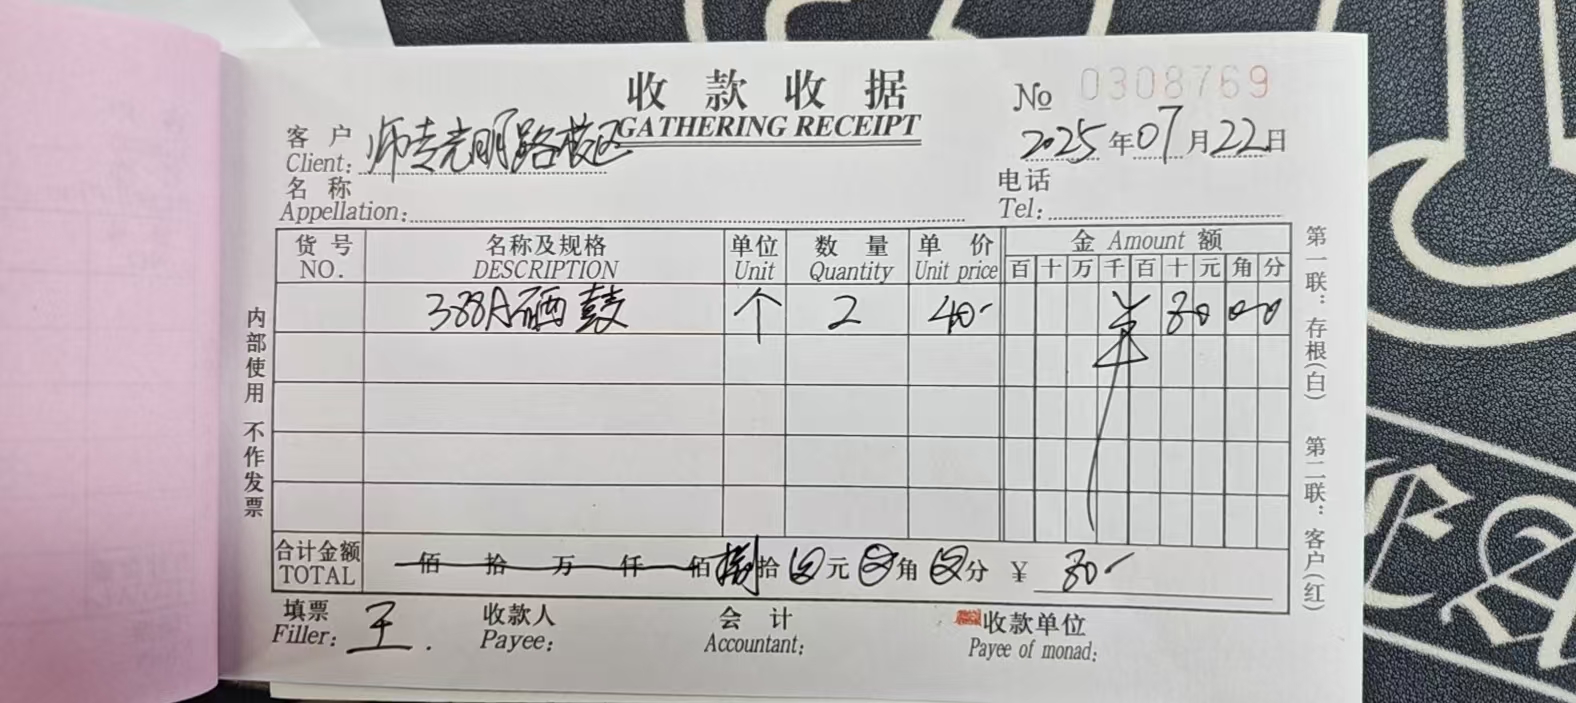 收款收据
GATHERING RECEIPT
№ 0308769
客户 师专光明路校区
Client:
2025年07月22日
名称
Appellation:
电话
Tel:
货号 名称及规格 单位 数量 单价 金 Amount 额
NO. DESCRIPTION Unit Quantity Unit price 百 十 万 千 百 十 元 角 分
388A硒鼓 个 2 40- ¥ 8 0 0 0
合计金额 佰 拾 万 仟 佰 捌 拾 元 角 分 ¥ 80-
TOTAL
填票 王. 收款人 会计 收款单位
Filler: Payee: Accountant: Payee of monad:
内部使用 不作发票
第一联：存根(白) 第二联：客户(红)